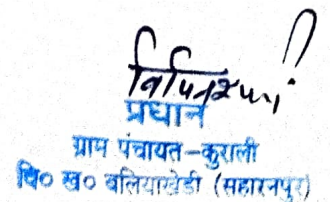 प्रधान
ग्राम पंचायत-कुराली
वि० ख० बलियाखेडी (सहारनपुर)